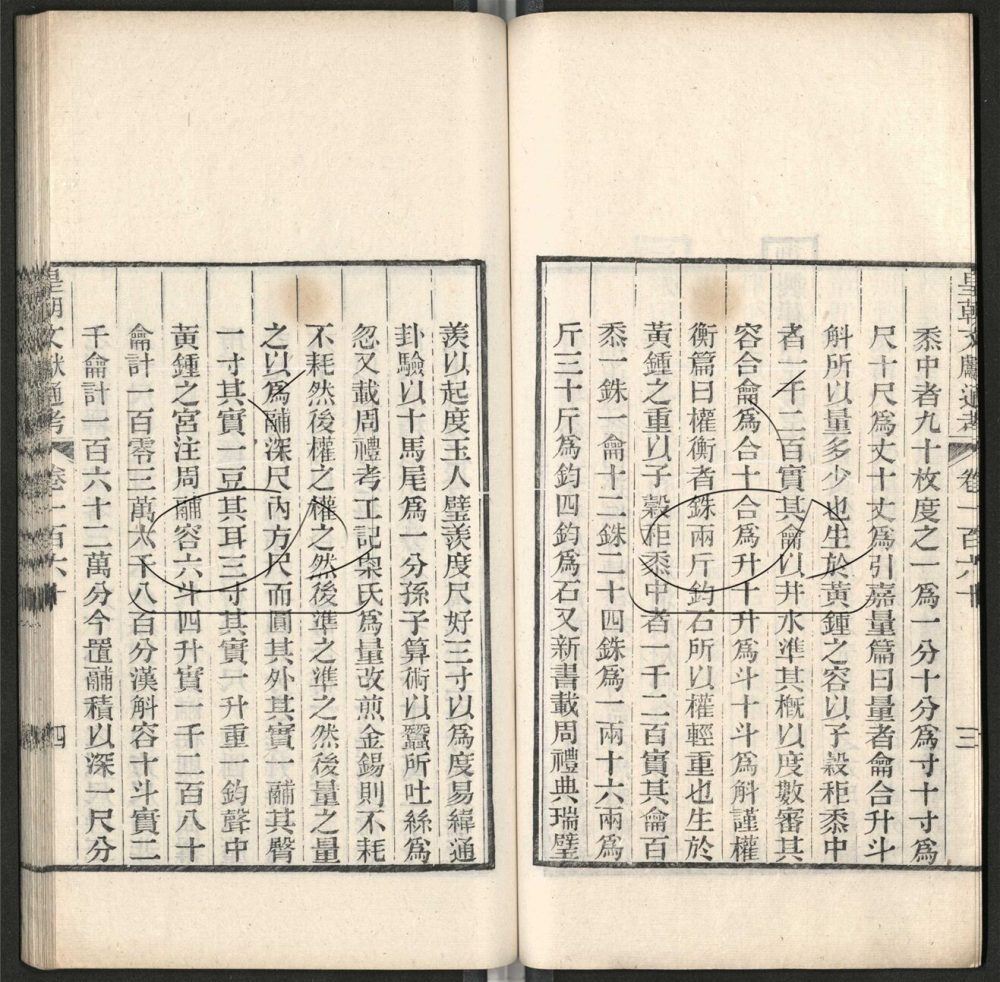 皇朝文獻通考 卷一百六十 三
黍中者九十枚度之一爲一分十分爲寸十寸爲
尺十尺爲丈十丈爲引嘉量篇曰量者龠合升斗
斛所以量多少也生於黃鍾之容以子穀秬黍中
者一千二百實其龠以井水準其概以度數審其
容合龠爲合十合爲升十升爲斗十斗爲斛謹權
衡篇曰權衡者銖兩斤鈞石所以權輕重也生於
黃鍾之重以子穀秬黍中者一千二百實其龠百
黍一銖一龠十二銖二十四銖爲一兩十六兩爲
斤三十斤爲鈞四鈞爲石又新書載周禮典瑞璧
羨以起度玉人璧羨度尺好三寸以爲度易緯通
卦驗以十馬尾爲一分孫子算術以蠶所吐絲爲
忽又載周禮考工記㮚氏爲量改煎金錫則不耗
不耗然後權之權之然後準之準之然後量之量
之以爲鬴深尺內方尺而圓其外其實一鬴其臀
一寸其實一豆其耳三寸其實一升重一鈞聲中
黃鍾之宮注周鬴容六斗四升實一千二百八十
龠計一百零三萬六千八百分漢斛容十斗實二
千龠計一百六十二萬分今置鬴積以深一尺分
皇朝文獻通考 卷一百六十 四